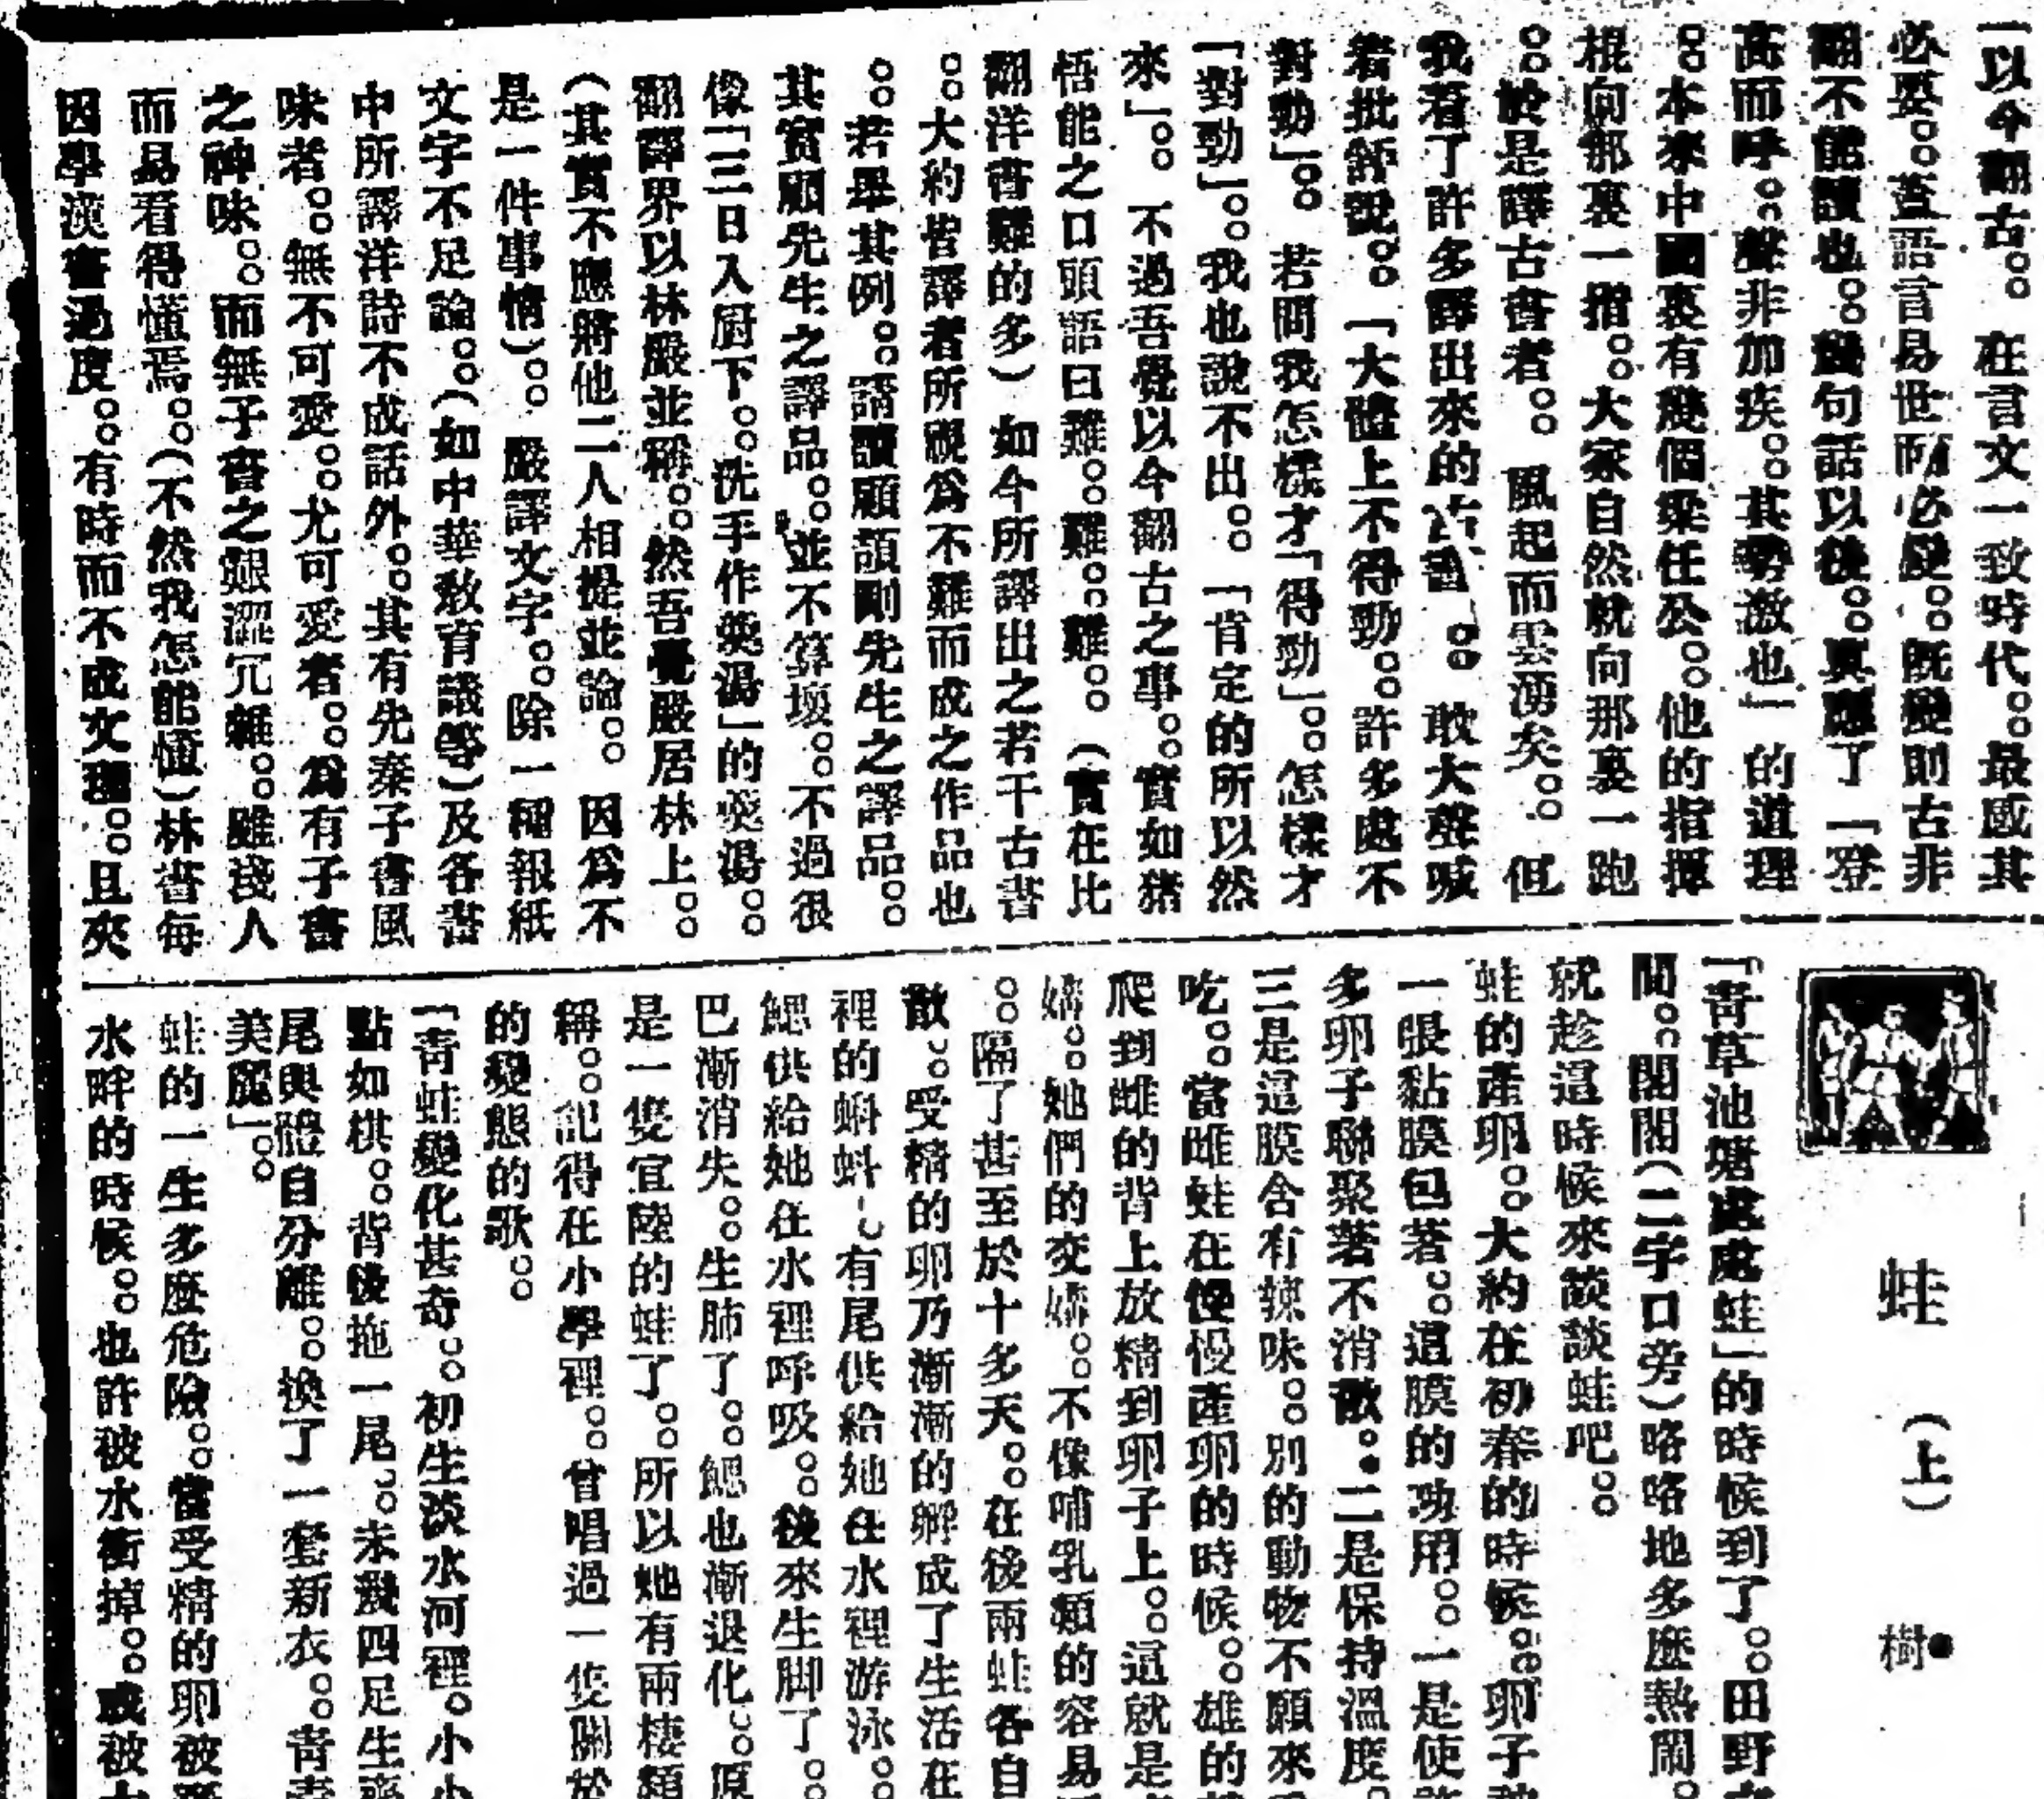 一以今翻古。。在言文一致時代。。最感其
必要。。蓋語言易世而必變。。既變則古非
翻不能讀也。。幾句話以後。。真應了「登
高而呼。。聲非加疾。。其勢激也」的道理
。。本來中國裏有幾個梁任公。。他的指揮
棍向那裏一指。。大家自然就向那裏一跑
。。於是譯古書者。。風起而雲湧矣。。但
我看了許多譯出來的古書。。敢大聲喊
着批評說。。「大體上不得勁。。許多處不
對勁」。。若問我怎樣才「得勁」。。怎樣才
「對勁」。。我也說不出。。「肯定的所以然
來」。。不過吾覺以今翻古之事。。實如猪
悟能之口頭語曰難。。難。。難。。(實在比
翻洋書難的多)如今所譯出之若干古書
。。大約皆譯者所視為不難而成之作品也
。。若畢其例。。請讀顧頡剛先生之譯品。。
其實顧先生之譯品。。並不算壞。。不過很
像「三日入厨下。。洗手作羮湯」的羮湯。。
翻譯界以林嚴並稱。。然吾覺嚴居林上。。
(其實不應將他二人相提並論。。因為不
是一件事情)。。嚴譯文字。。除一種報紙
文字不足論。。(如中華教育議等)及各書
中所譯洋詩不成話外。。其有先秦子書風
味者。。無不可愛。。尤可愛者。。為有子書
之神味。。而無子書之艱澀冗雜。。雖淺人
而易看得懂焉。。(不然我怎能懂)林書每
因學漢書過度。。有時而不成文理。。且夾
蛙 (上) 樹
「青草池塘處處蛙」的時候到了。。田野
間。。閣閣(二字口旁)咯咯地多麼熱鬧。
就趁這時候來談談蛙吧。。
蛙的產卵。。大約在初春的時候。。卵子
一張黏膜包著。。這膜的功用。。一是使許
多卵子聯聚著不消散。。二是保持溫度。
三是這膜含有辣味。。別的動物不願來
吃。。當雌蛙在慢慢產卵的時候。。雄的
爬到雌的背上放精到卵子上。。這就是
媾。。她們的交媾。。不像哺乳類的容易
。。隔了甚至於十多天。。在後兩蛙各自
散。。受精的卵乃漸漸的孵成了生活在
裡的蝌蚪。。有尾供給她在水裡游泳。。
鰓供給她在水裡呼吸。。後來生脚了。。
巴漸消失。。生肺了。。鰓也漸退化。。原
是一隻宜陸的蛙了。。所以她有兩棲類
稱。。記得在小學裡。。曾唱過一隻關於
的變態的歌。。
「青蛙變化甚奇。。初生淡水河裡。小小
點如棋。。背後拖一尾。。未幾四足生齊
尾與體自分離。。換了一套新衣。。青青
美麗」。。
蛙的一生多麼危險。。當受精的卵被
水畔的時候。。也許被水衝掉。。或被